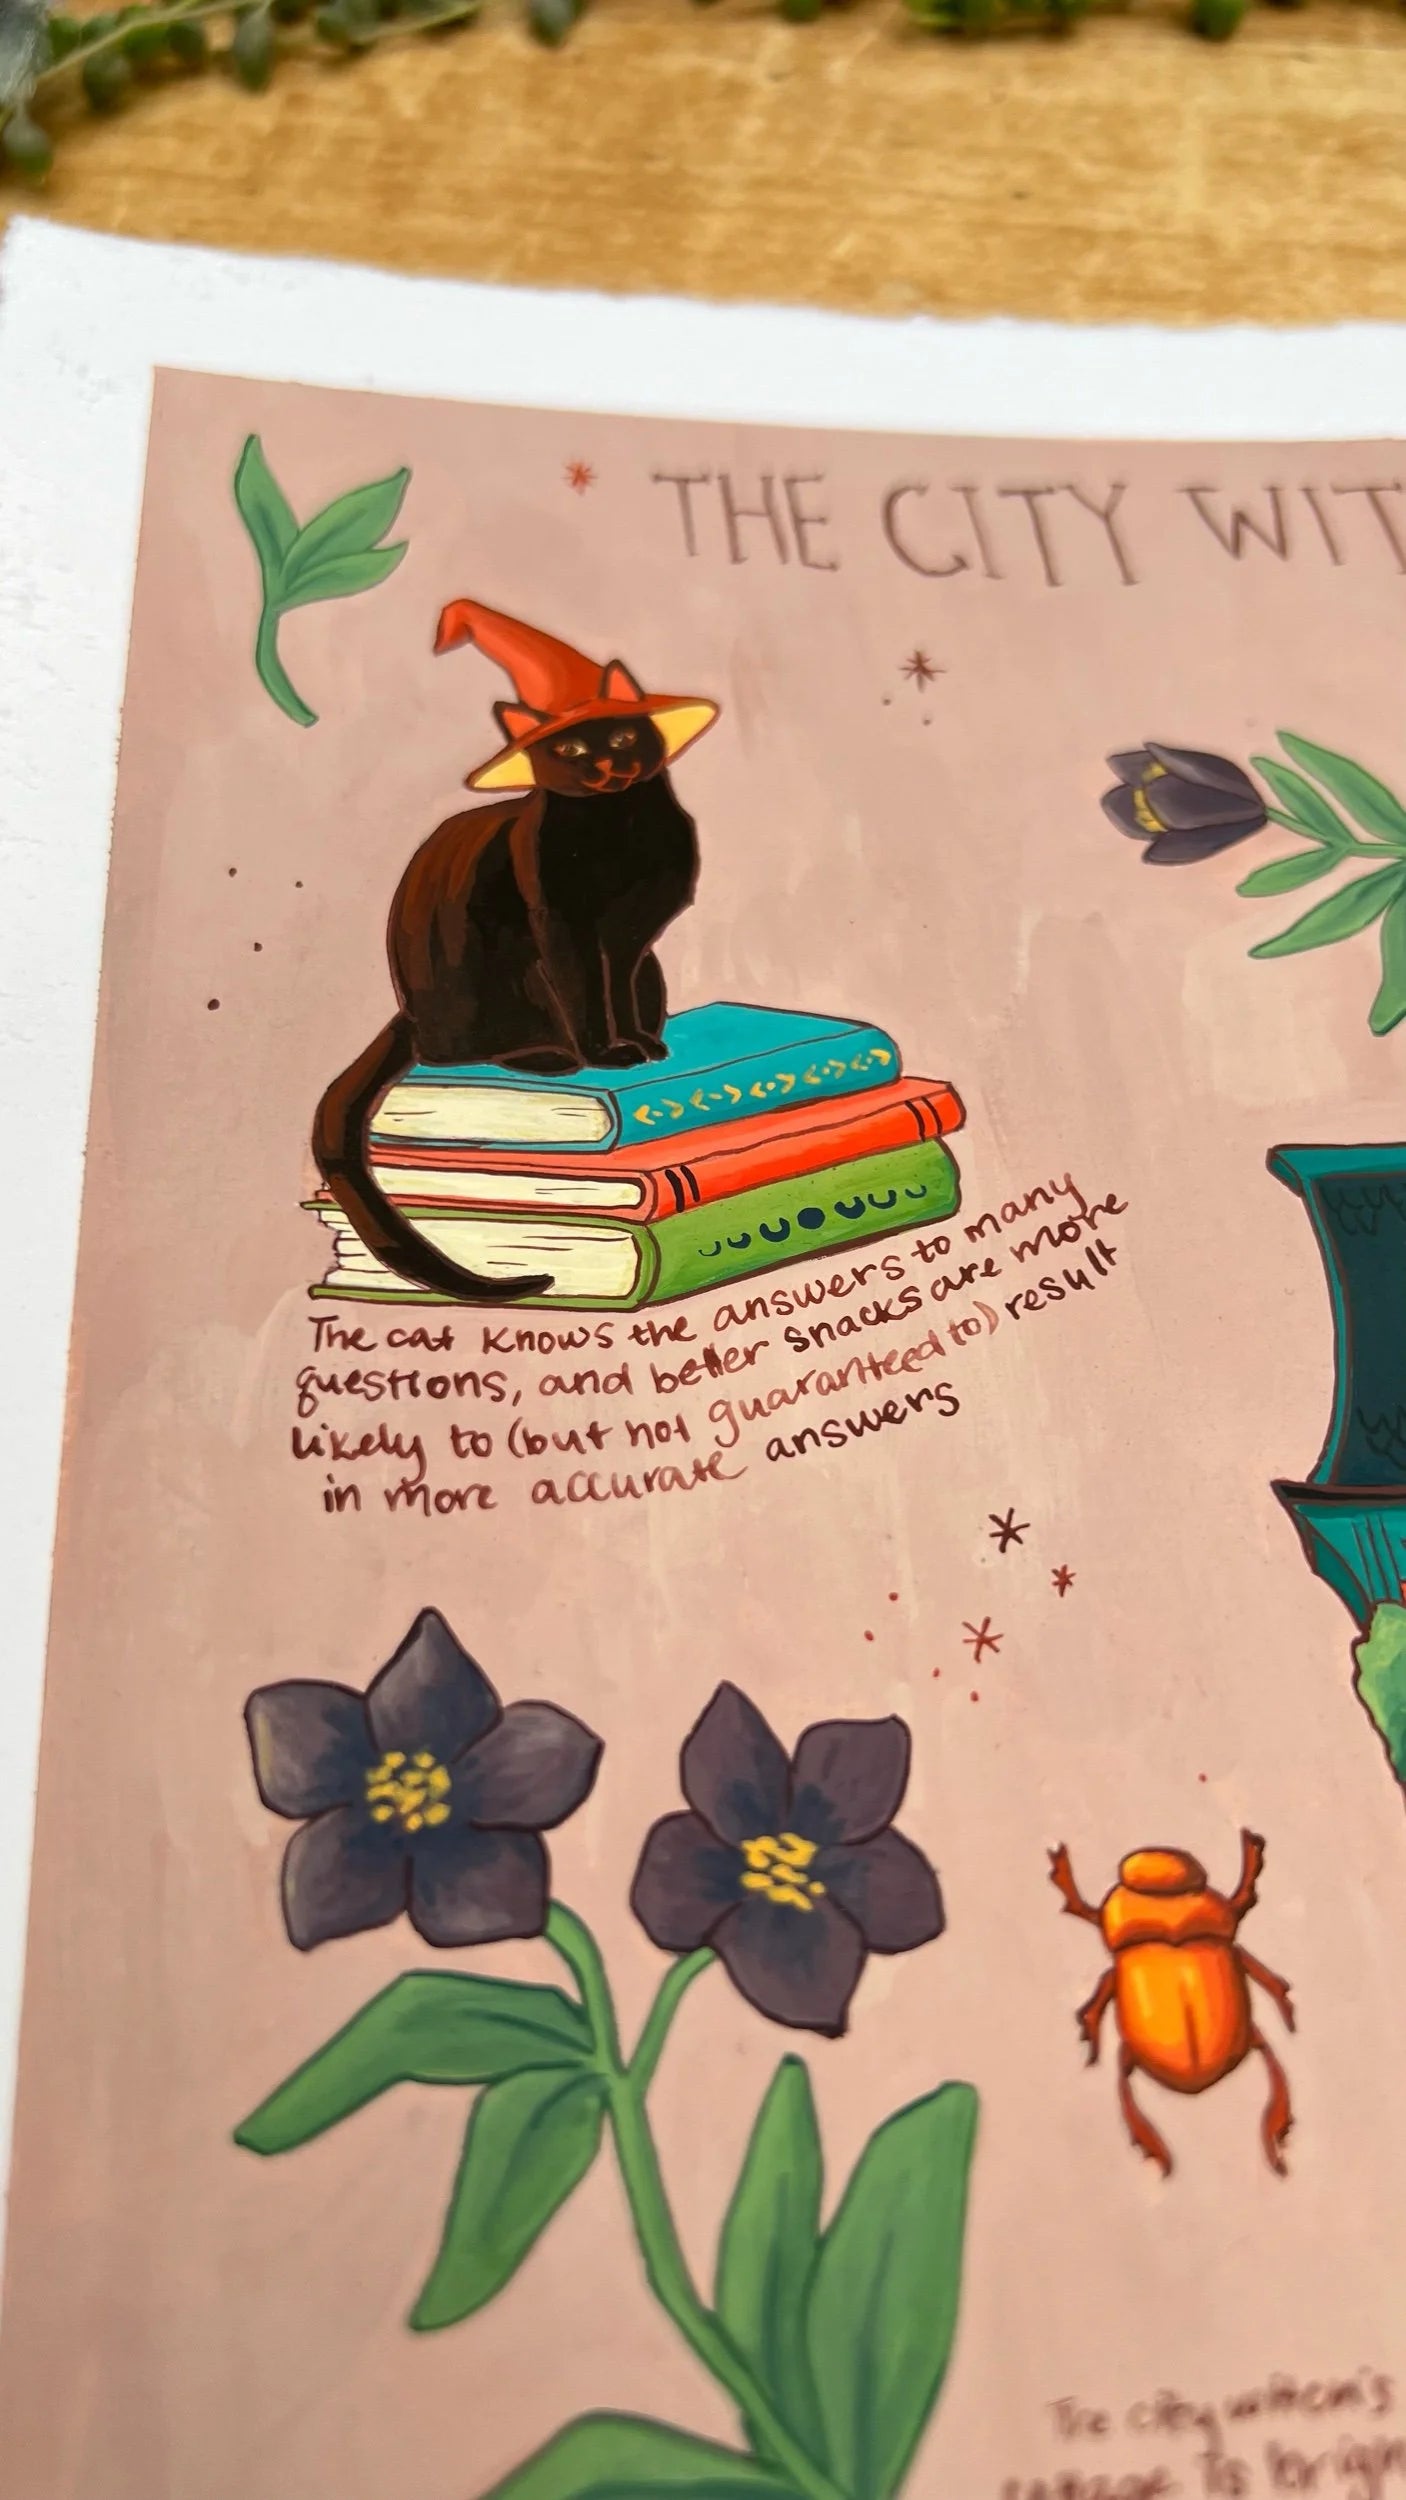 THE CITY WIT
The cat knows the answers to many
questions, and better snacks are more
likely to (but not guaranteed to) result
in more accurate answers
The city witch's
is brigh